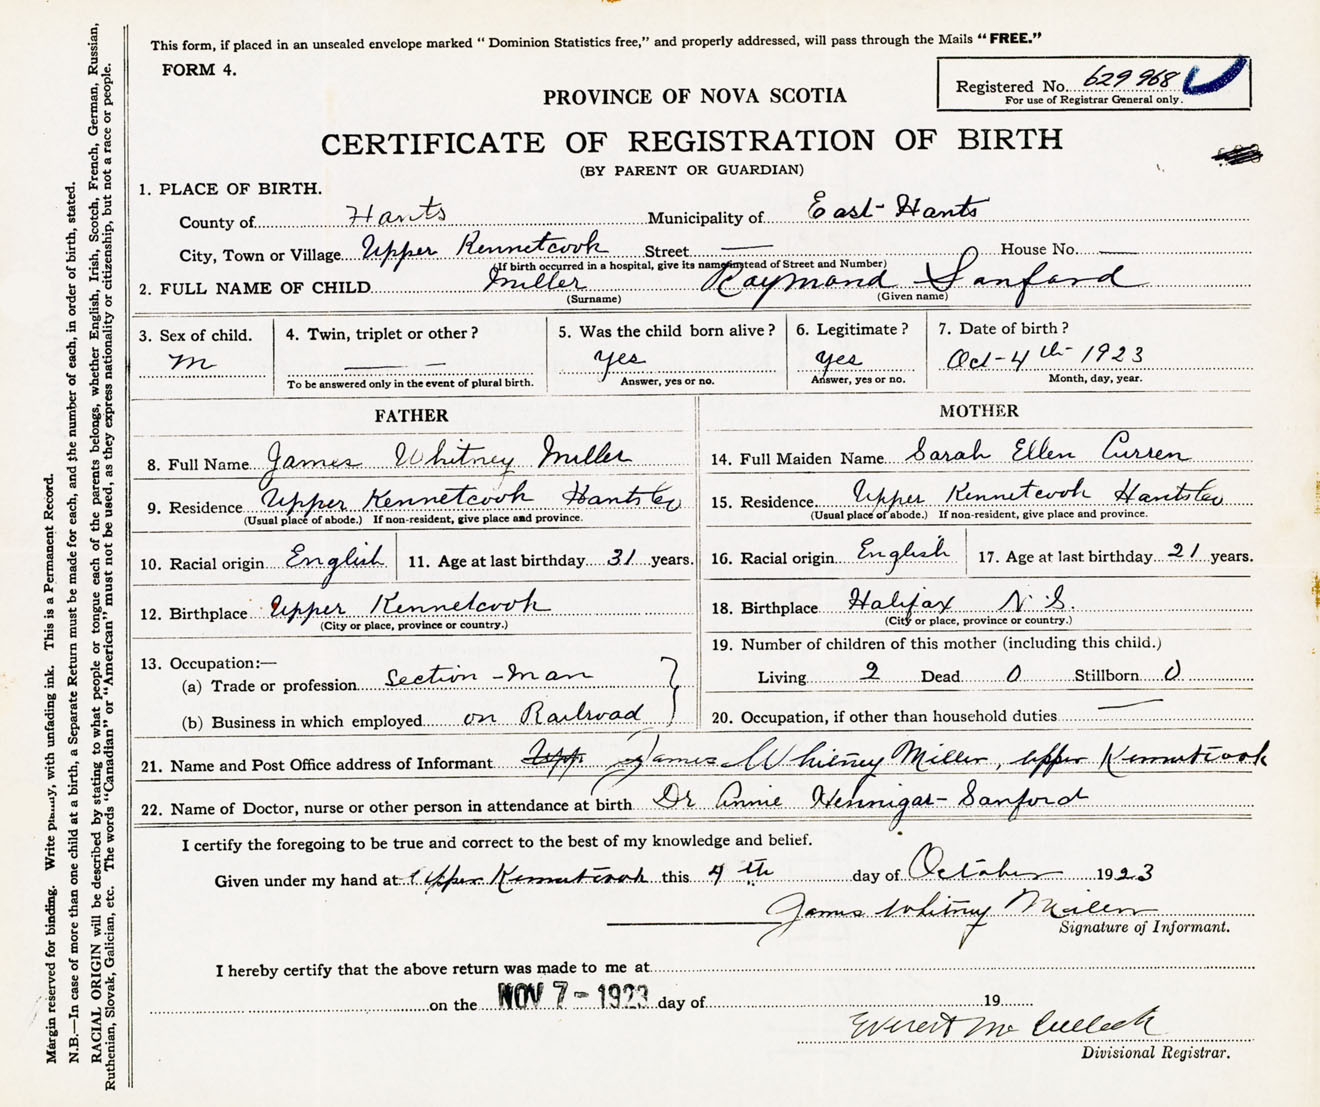 This form, if placed in an unsealed envelope marked "Dominion Statistics free," and properly addressed, will pass through the Mails "FREE."
FORM 4.
Registered No. 629968
For use of Registrar General only.
PROVINCE OF NOVA SCOTIA
CERTIFICATE OF REGISTRATION OF BIRTH
(BY PARENT OR GUARDIAN)
1. PLACE OF BIRTH.
County of Hants Municipality of East-Hants
City, Town or Village Upper Kennetcook Street — House No. —
(If birth occurred in a hospital, give its name instead of Street and Number)
2. FULL NAME OF CHILD Miller Raymond Sanford
(Surname) (Given name)
3. Sex of child. 4. Twin, triplet or other? 5. Was the child born alive? 6. Legitimate? 7. Date of birth?
M — — yes yes Oct-4th 1923
To be answered only in the event of plural birth. Answer, yes or no. Answer, yes or no. Month, day, year.
FATHER
8. Full Name James Whitney Miller
9. Residence Upper Kennetcook Hants Co
(Usual place of abode.) If non-resident, give place and province.
10. Racial origin English 11. Age at last birthday 31 years.
12. Birthplace Upper Kennetcook
(City or place, province or country.)
13. Occupation:—
(a) Trade or profession Section-man
(b) Business in which employed on Railroad
MOTHER
14. Full Maiden Name Sarah Ellen Curren
15. Residence Upper Kennetcook Hants Co
(Usual place of abode.) If non-resident, give place and province.
16. Racial origin English 17. Age at last birthday 21 years.
18. Birthplace Halifax N.S.
(City or place, province or country.)
19. Number of children of this mother (including this child.)
Living 2 Dead 0 Stillborn 0
20. Occupation, if other than household duties —
21. Name and Post Office address of Informant Upp James Whitney Miller, Upper Kennetcook
22. Name of Doctor, nurse or other person in attendance at birth Dr Annie Hennigar-Sanford
I certify the foregoing to be true and correct to the best of my knowledge and belief.
Given under my hand at Upper Kennetcook this 4th day of October 1923
James Whitney Miller
Signature of Informant.
I hereby certify that the above return was made to me at
on the NOV 7-1923 day of 19
Everett McCulloch
Divisional Registrar.
Margin reserved for binding. Write plainly, with unfading ink. This is a Permanent Record.
N.B.—In case of more than one child at a birth, a Separate Return must be made for each, and the number of each, in order of birth, stated.
RACIAL ORIGIN will be described by stating to what people or tongue each of the parents belongs, whether English, Irish, Scotch, French, German, Russian,
Ruthenian, Slovak, Galician, etc. The words "Canadian" or "American" must not be used, as they express nationality or citizenship, but not a race or people.